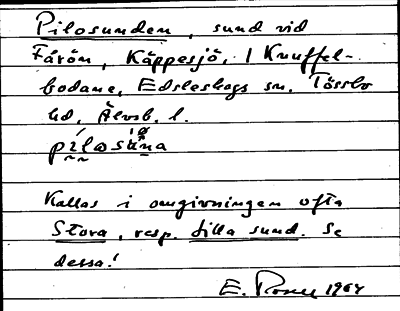 Pilosunden, sund vid
Fårön, Käppesjö, 1 Knuffel-
bodane, Edsleskogs sn, Tössbo
hd, Älvsb. l.
pilosuna
Kallas i omgivningen ofta
Stora, resp. Lilla sund. Se
dessa!
E. 1964